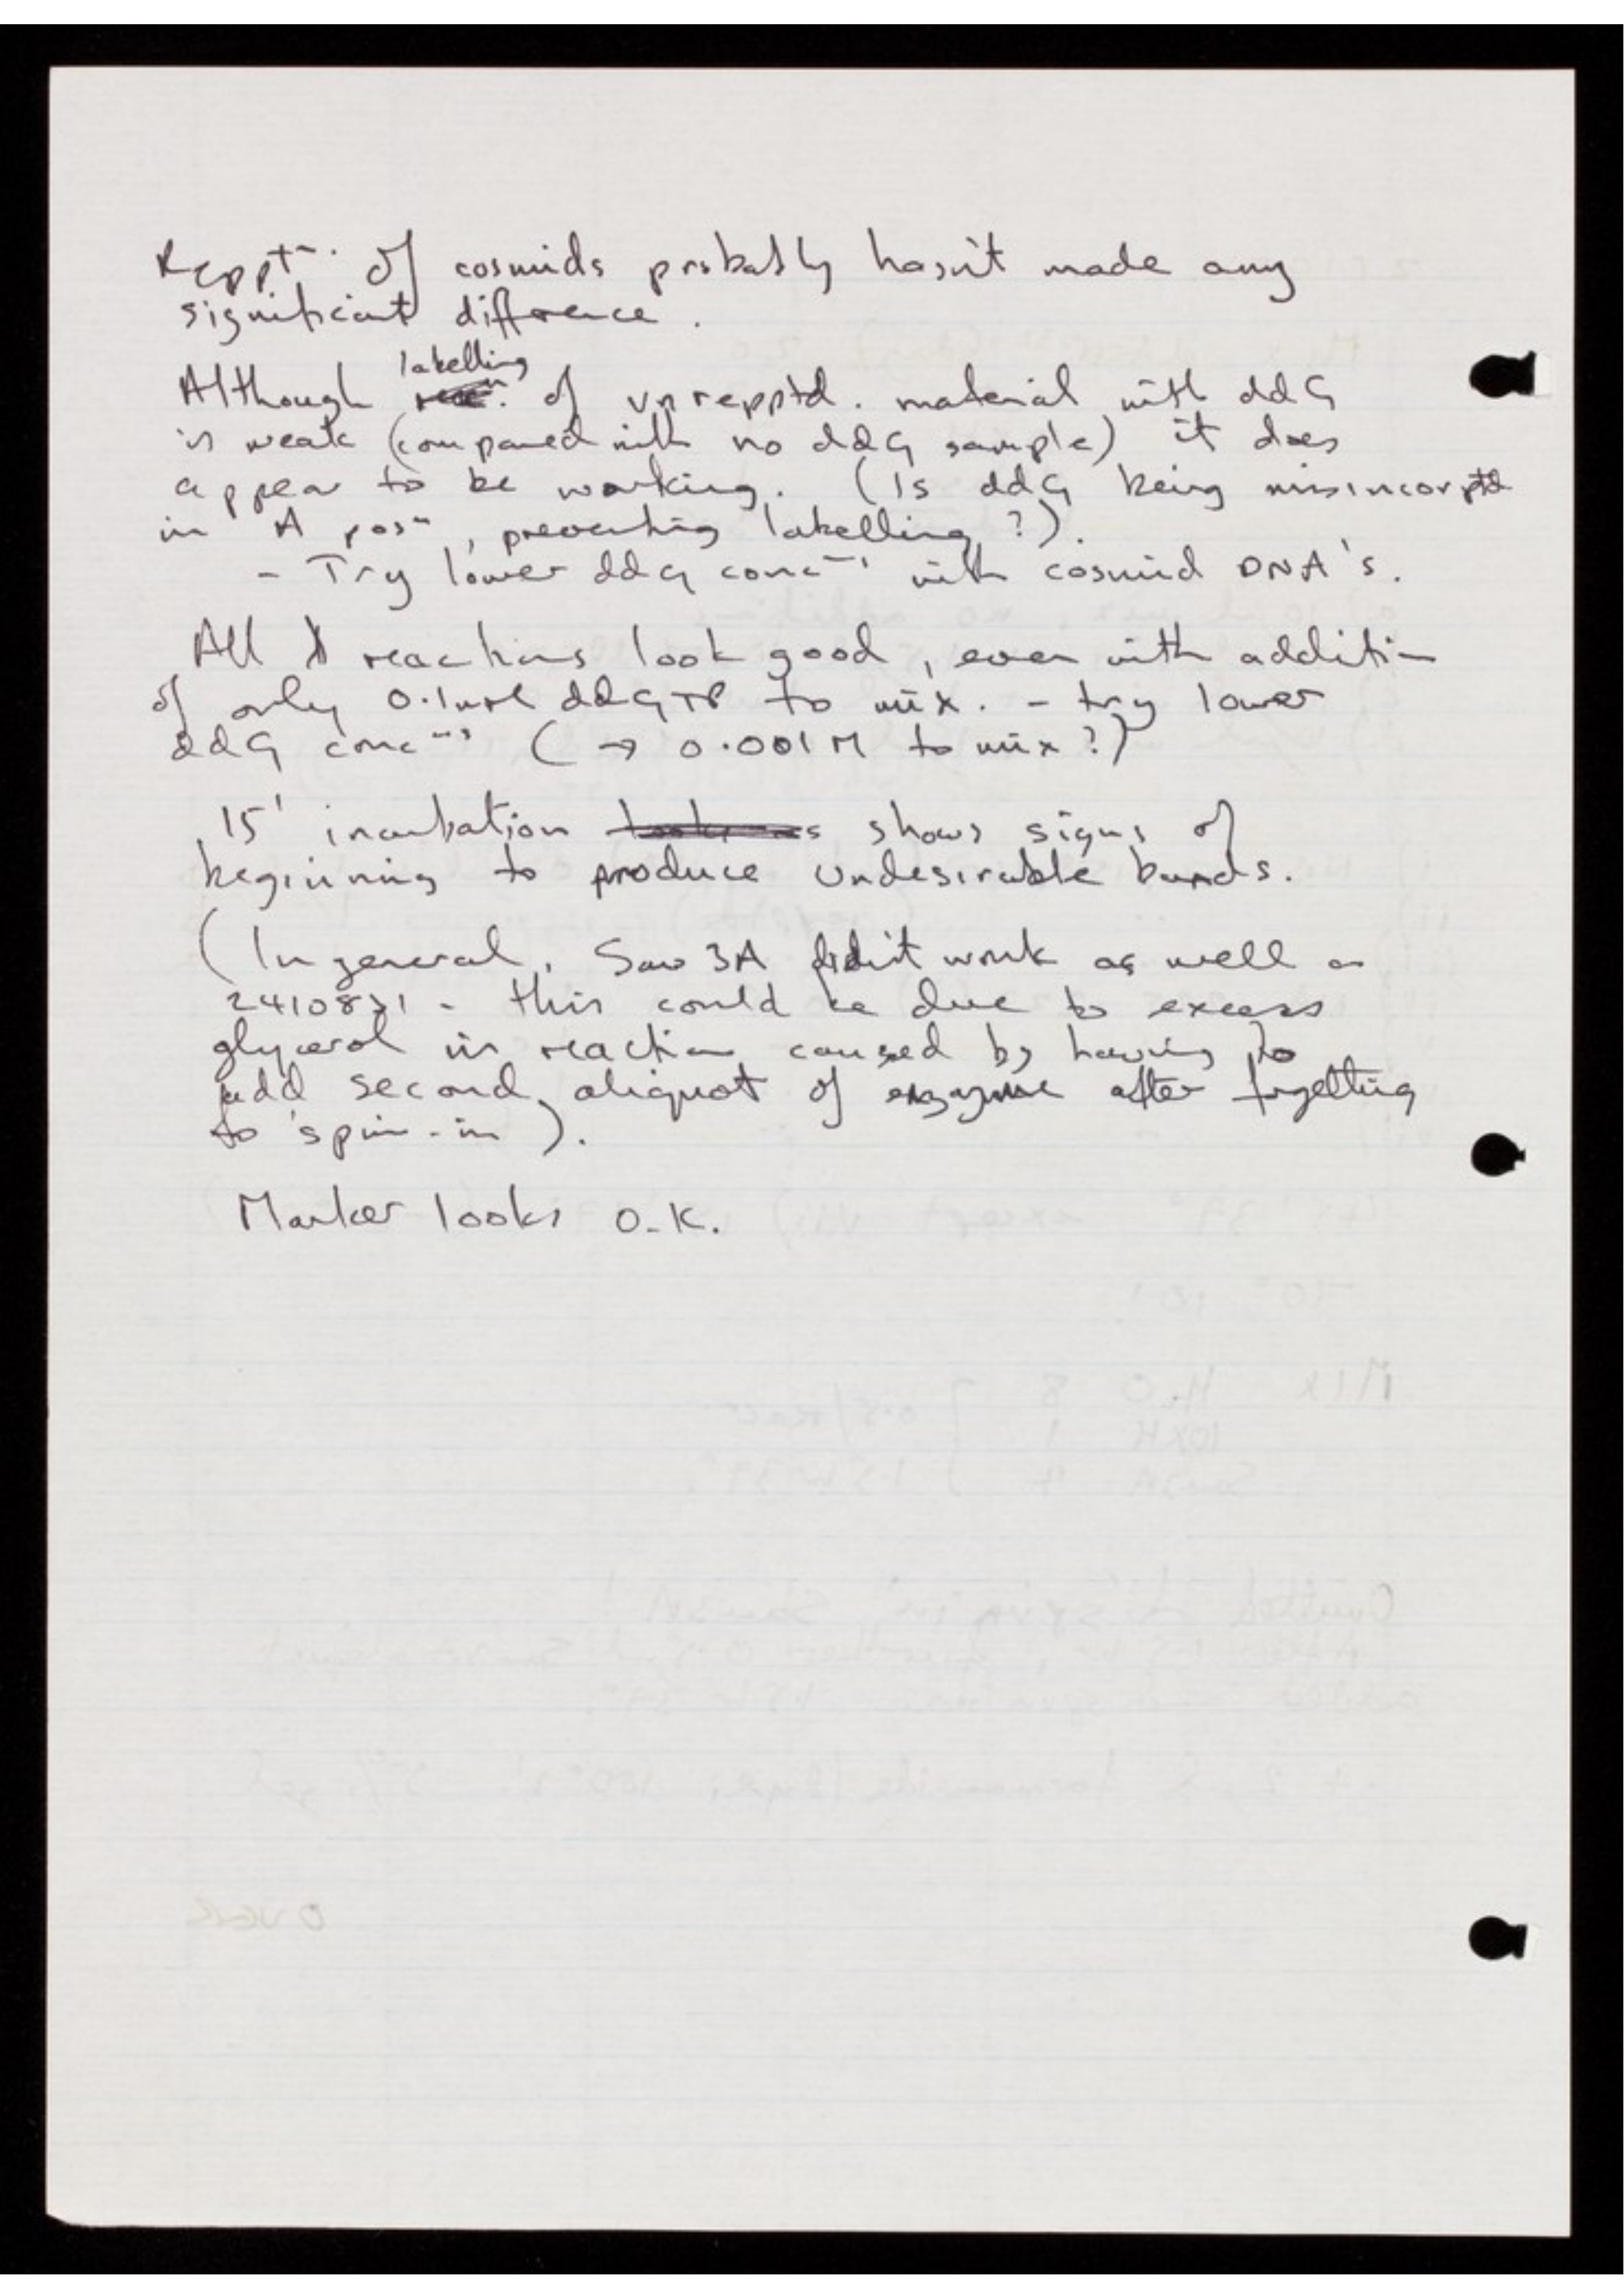 Reppt⁻. of cosmids probably hasn't made any
significant difference.
labelling
Although of unrepptd. material with ddG
is weak (compared with no ddG sample) it does
appear to be working. (Is ddG being misincorptd
in A posⁿ, preventing labelling?).
- Try lower ddG conc⁻ˢ with cosmid DNA's.
All λ reactions look good, even with addition
of only 0.1 ddGTP to mix. - try lower
ddG concⁿˢ (→ 0.001M to mix?)
15' incubation shows signs of
beginning to produce undesirable bands.
(In general, Sau 3A didn't work as well as
2410831 - this could be due to excess
glycerol in reaction caused by having to
add second aliquot of enzyme after forgetting
to spin-in).
Marker looks O.K.